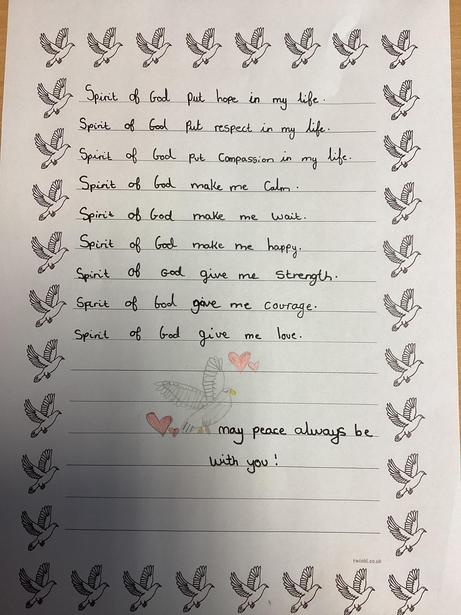 Spirit of God put hope in my life.
Spirit of God Put respect in my life.
Spirit of God put Compassion in my life.
Spirit of God make me Calm.
Spirit of God make me wait.
Spirit of God make me happy.
Spirit of God give me strength.
Spirit of God give me courage.
Spirit of God give me love.
may peace always be
with you!
twinkl.co.uk